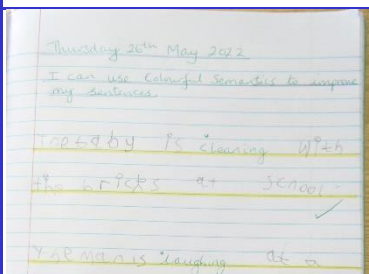 Thursday 26th May 2022
I can use Colourful Semantics to improve
my sentences.
The baby is cleaning with
the bricks at school.
The man is laughing at a